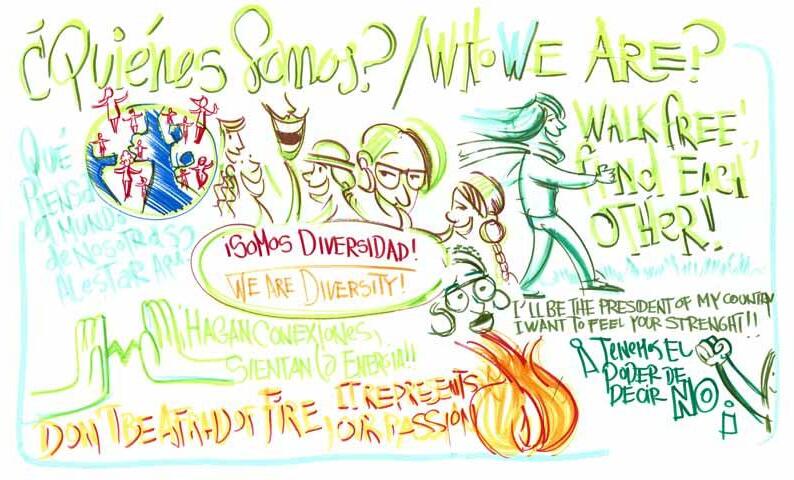 ¿Quiénes Somos? / WHO WE ARE?
QUÉ
PIENSA
El MUNDO
de NOSOTRAS
AL ESTAR AQUÍ
WALK FREE!,
FIND EACH
OTHER!
¡SOMOS DIVERSIDAD!
WE ARE DIVERSITY!
I'LL BE THE PRESIDENT OF MY COUNTRY
I WANT TO FEEL YOUR STRENGHT!!
¡HAGAN CONEXIONES,
SIENTAN LA ENERGIA!!
¡TENEMOS EL
PODER DE
DECIR NO!
DON'T BE AFRAID OF FIRE IT REPRESENTS
YOUR PASSION